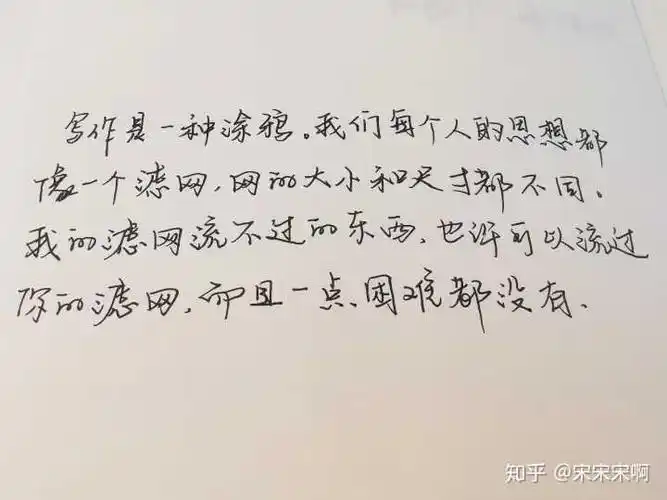 写作是一种涂鸦。我们每个人的思想都
像一个滤网,网的大小和尺寸都不同、
我的滤网流不过的东西,也许可以流过
你的滤网,而且一点困难都没有、
知乎 @宋宋宋啊